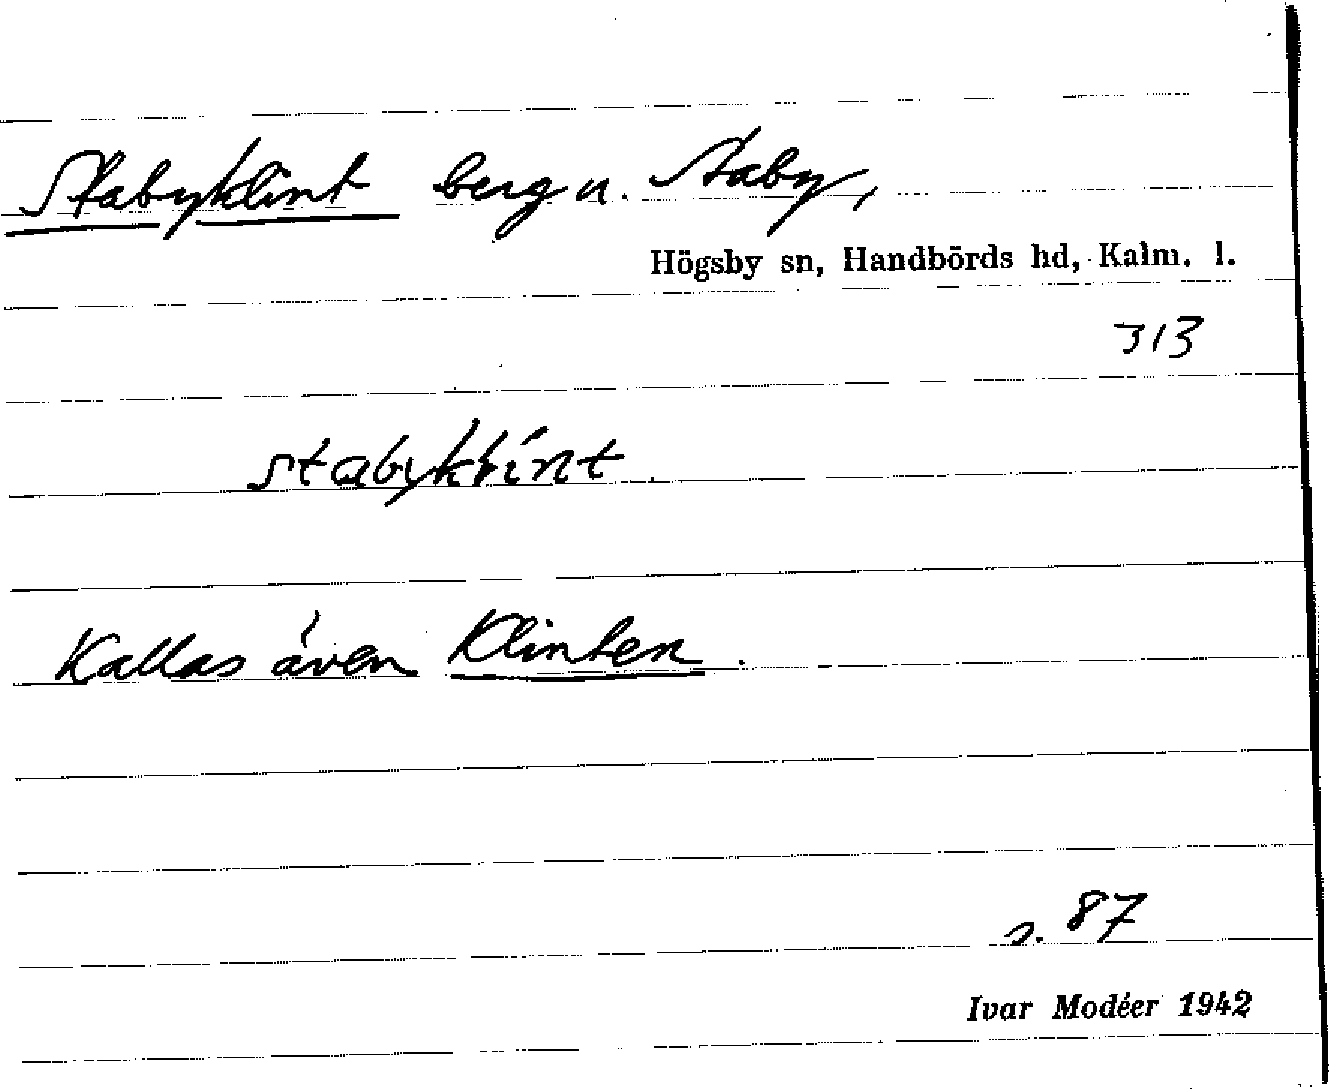 Stabyklint berg u. Staby,
Högsby sn, Handbörds hd, Kalm. l.
313
stabyklint
Kallas även Klinten.
s. 87
Ivar Modéer 1942